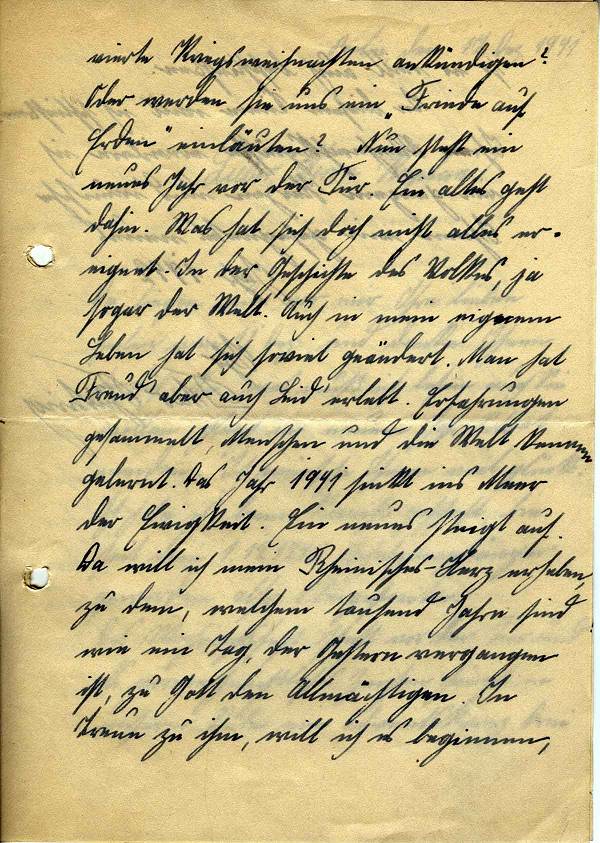 vierte Kriegsweihnachten ankündigen?
Oder werden sie uns ein „Friede auf
Erden" einläuten? Nun steht ein
neues Jahr vor der Tür. Ein altes geht
dahin. Was hat sich doch nicht alles er-
eignet. In der Geschichte des Volkes, ja
sogar der Welt. Auch in mein eigenem
Leben hat sich soviel geändert. Man hat
Freud' aber auch Leid' erlebt. Erfahrungen
gesammelt, Menschen und die Welt kennen
gelernt. Das Jahr 1941 sinkt ins Meer
der Ewigkeit. Ein neues steigt auf.
Da will ich mein Rheinisches-Herz erheben
zu dem, welchem tausend Jahre sind
wie ein Tag, der Gestern vergangen
ist, zu Gott den Allmächtigen. In
Treue zu ihm, will ich es beginnen,